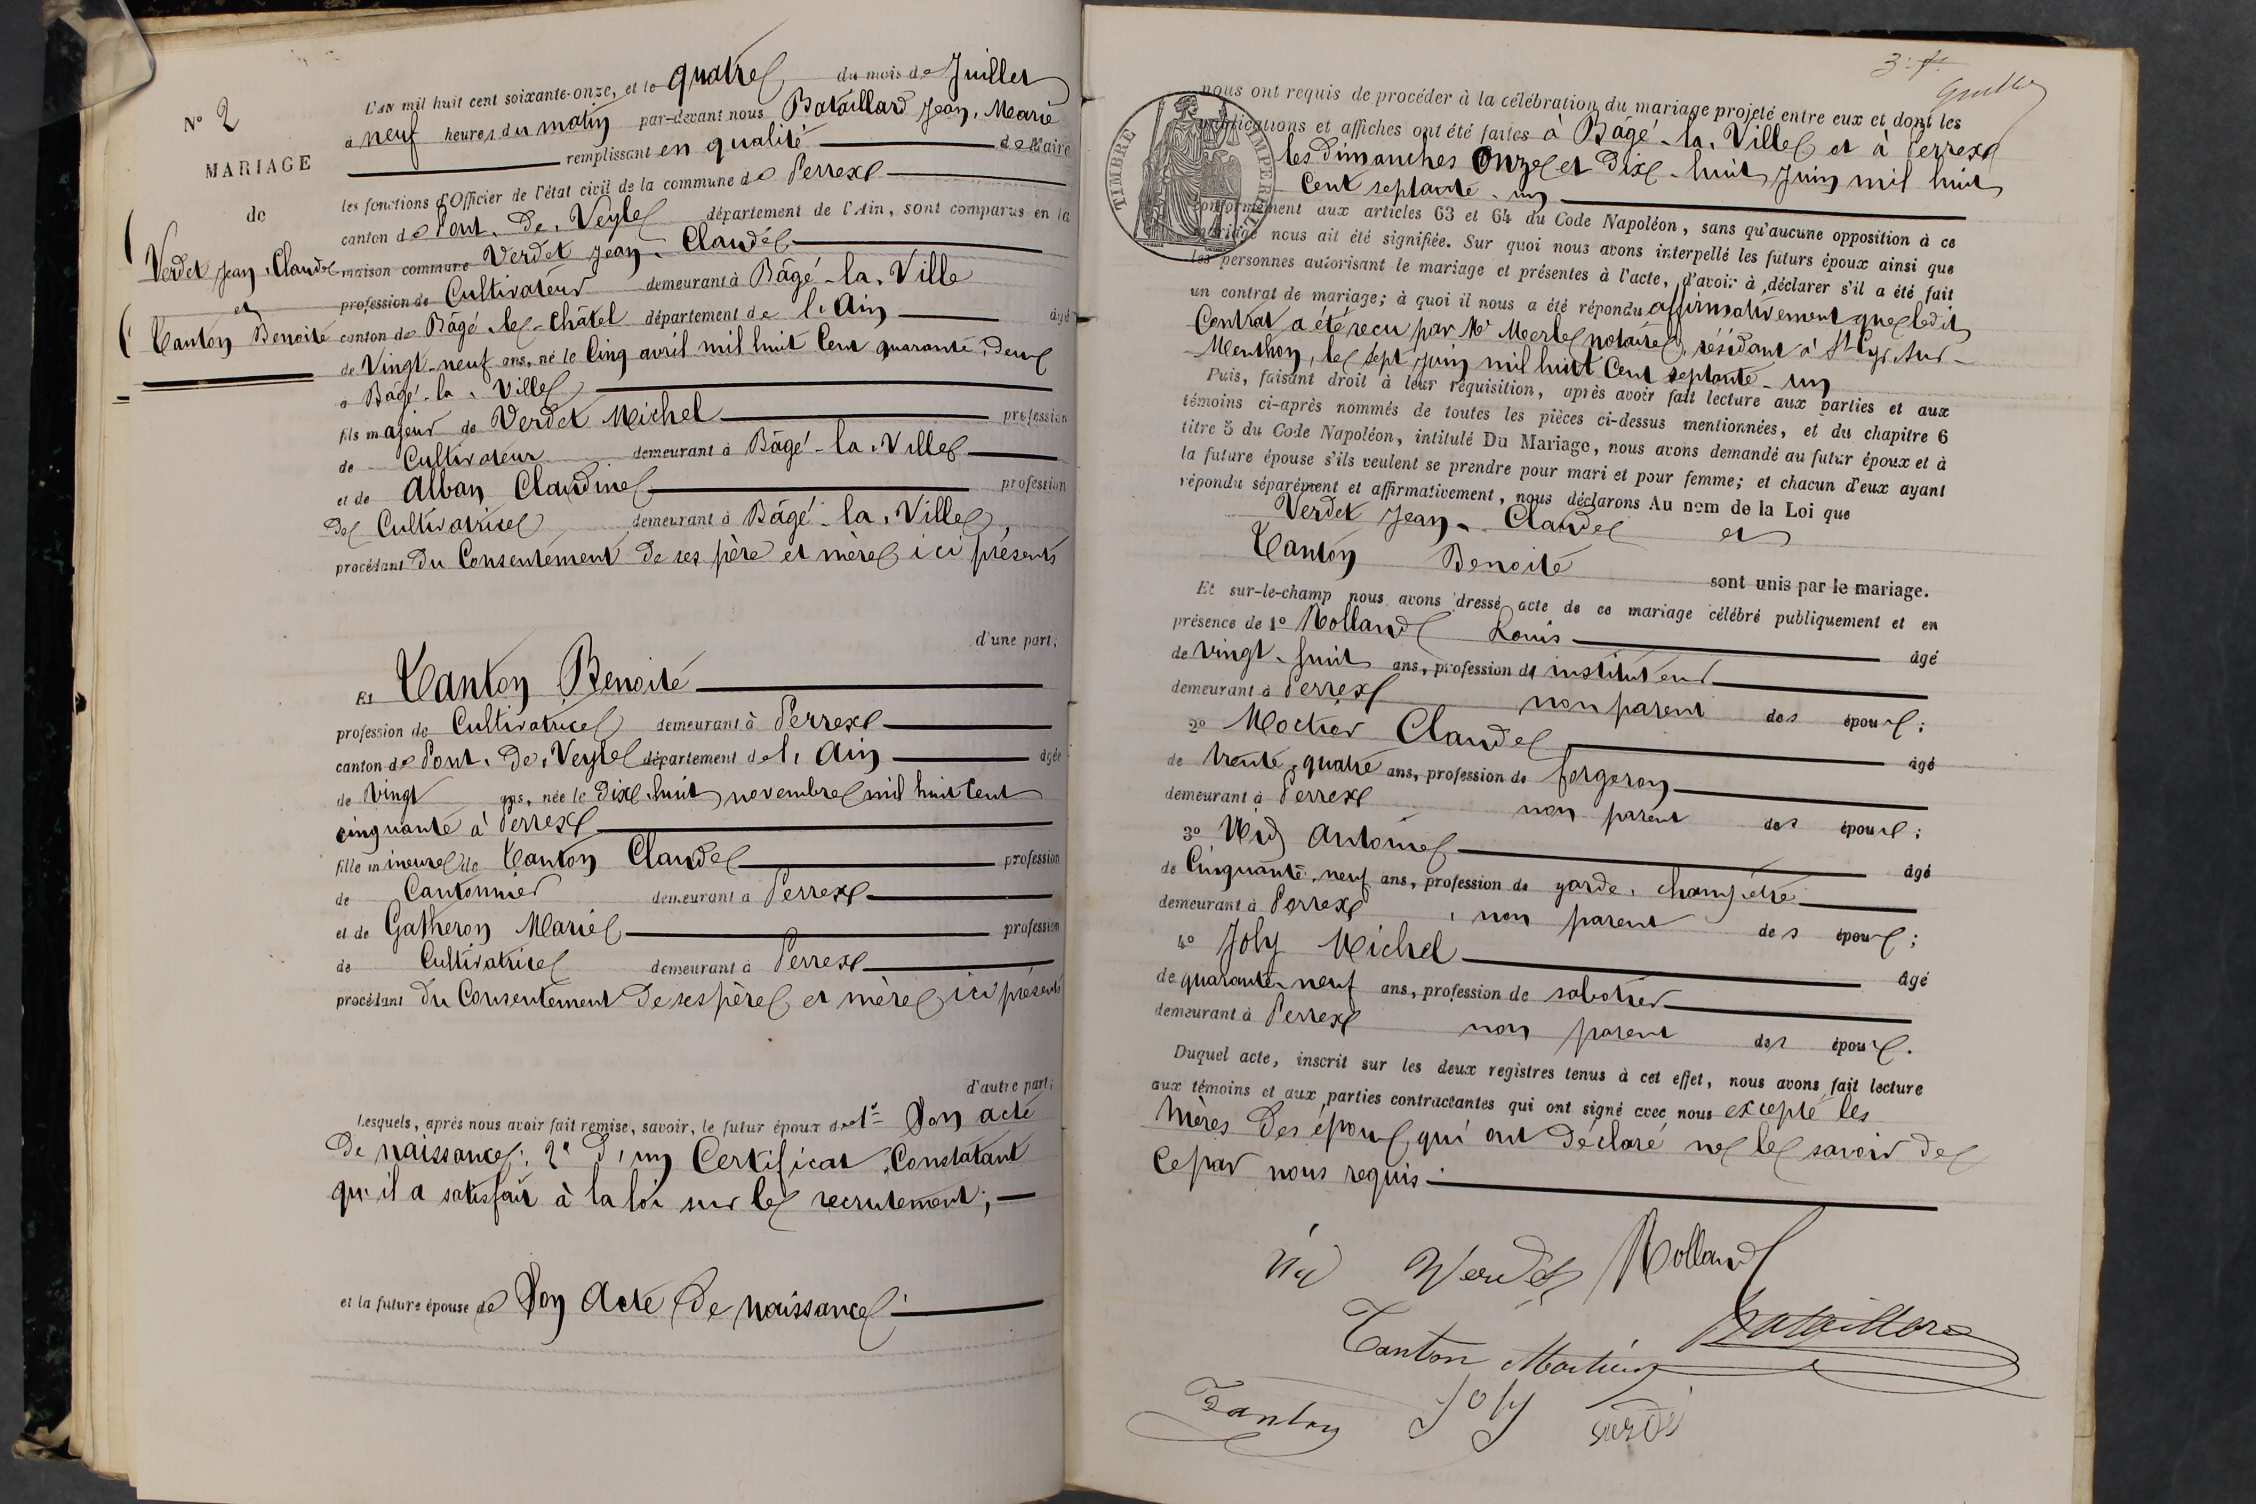 N° 2
MARIAGE
de
Verdet Jean, Claude
et
Tanton Benoite
L'an mil huit cent soixante-onze, et le quatre du mois de Juillet
à neuf heures du matin par-devant nous Bataillard Jean, Marie
remplissant en qualité de Maire
les fonctions d'Officier de l'état civil de la commune de Perrex
canton de Pont, de, Veyle département de l'Ain, sont comparus en la
maison commune Verdet Jean, Claude
profession de Cultivateur demeurant à Bâgé-la, Ville
canton de Bâgé-le-Châtel département de l'Ain âgé
de Vingt-neuf ans, né le Cinq avril mil huit Cent quarante, deux
à Bâgé-la, Ville
fils majeur de Verdet Michel profession
de Cultivateur demeurant à Bâgé-la, Ville
et de Alban Claudine profession
de Cultivatrice demeurant à Bâgé-la, Ville,
procédant du Consentement de ses père et mère ici présents
d'une part;
Et Tanton Benoite
profession de Cultivatrice demeurant à Perrex
canton de Pont, de, Veyle département de l'Ain âgée
de Vingt ans, née le dix, huit novembre mil huit Cent
cinquante à Perrex
fille mineure de Tanton Claude profession
de Cantonnier demeurant à Perrex
et de Gatheron Marie profession
de Cultivatrice demeurant à Perrex
procédant du Consentement de ses père et mère, ici présents
d'autre part;
Lesquels, après nous avoir fait remise, savoir, le futur époux de 1° Son acte
de naissance; 2° d'un Certificat Constatant
qu'il a satisfait à la loi sur le recrutement;
et la future épouse de Son Acte de naissance
nous ont requis de procéder à la célébration du mariage projeté entre eux et dont les
publications et affiches ont été faites à Bâgé-la, Ville et à Perrex
les dimanches onze et dix-huit Juin mil huit
Cent septante-un
TIMBRE IMPERIAL
conformément aux articles 63 et 64 du Code Napoléon, sans qu'aucune opposition à ce
mariage nous ait été signifiée. Sur quoi nous avons interpellé les futurs époux ainsi que
les personnes autorisant le mariage et présentes à l'acte, d'avoir à déclarer s'il a été fait
un contrat de mariage; à quoi il nous a été répondu affirmativement que ledit
Contrat a été recu par Me Merle notaire, résidant à St Cyr, sur-
Menthon, le sept Juin mil huit Cent septante-un
Puis, faisant droit à leur réquisition, après avoir fait lecture aux parties et aux
témoins ci-après nommés de toutes les pièces ci-dessus mentionnées, et du chapitre 6
titre 5 du Code Napoléon, intitulé Du Mariage, nous avons demandé au futur époux et à
la future épouse s'ils veulent se prendre pour mari et pour femme; et chacun d'eux ayant
répondu séparément et affirmativement, nous déclarons Au nom de la Loi que
Verdet Jean-Claude et
Tanton Benoite
sont unis par le mariage.
Et sur-le-champ nous avons dressé acte de ce mariage célébré publiquement et en
présence de 1° Rolland Louis âgé
de vingt-huit ans, profession de instituteur
demeurant à Perrex non parent des époux;
2° Moctier Claude âgé
de trente, quatre ans, profession de forgeron
demeurant à Perrex non parent des époux;
3° Nid Antoine âgé
de Cinquante, neuf ans, profession de garde, champêtre
demeurant à Perrex, non parent des époux;
4° Joly Michel âgé
de quarante-neuf ans, profession de sabotier
demeurant à Perrex non parent des époux.
Duquel acte, inscrit sur les deux registres tenus à cet effet, nous avons fait lecture
aux témoins et aux parties contractantes qui ont signé avec nous excepté les
mères des époux qui ont déclaré ne le savoir de
Ce par nous requis.
Nid Verdet Rolland
Bataillard
Tanton Moctier
Tanton Joly